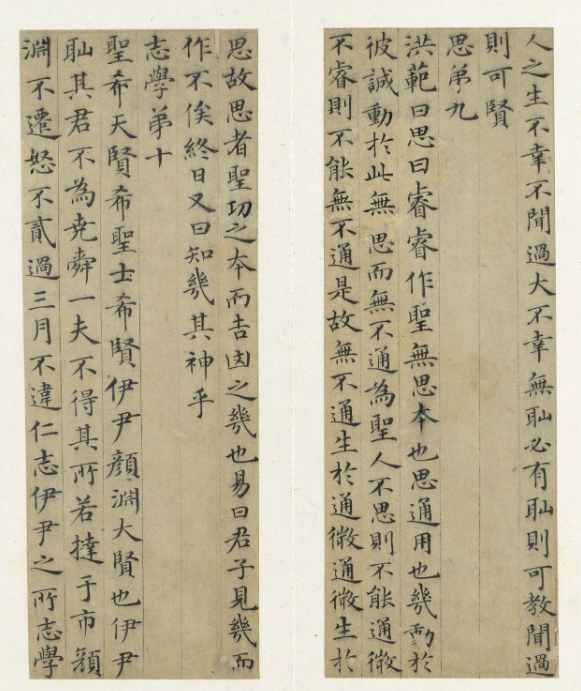 人之生不幸不聞過大不幸無恥必有恥則可教聞過
則可賢
思弟九
洪範曰思曰睿睿作聖無思本也思通用也幾動於
彼誠動於此無思而無不通為聖人不思則不能通微
不睿則不能無不通是故無不通生於通微通微生於
思故思者聖功之本而吉凶之幾也易曰君子見幾而
作不俟終日又曰知幾其神乎
志學弟十
聖希天賢希聖士希賢伊尹顏淵大賢也伊尹
恥其君不為堯舜一夫不得其所若撻于市顏
淵不遷怒不貳過三月不違仁志伊尹之所志學